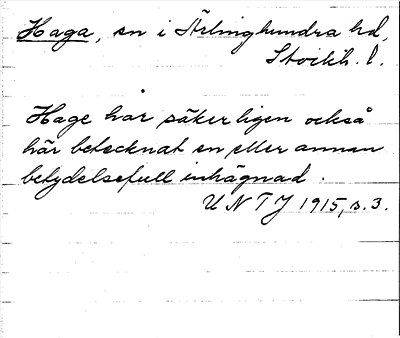 Haga, sn i Ärlinghundra hd,
Stockh. l.
Hage har säkerligen också
här betecknat en eller annan
betydelsefull inhägnad.
U N T J 1915, s. 3.